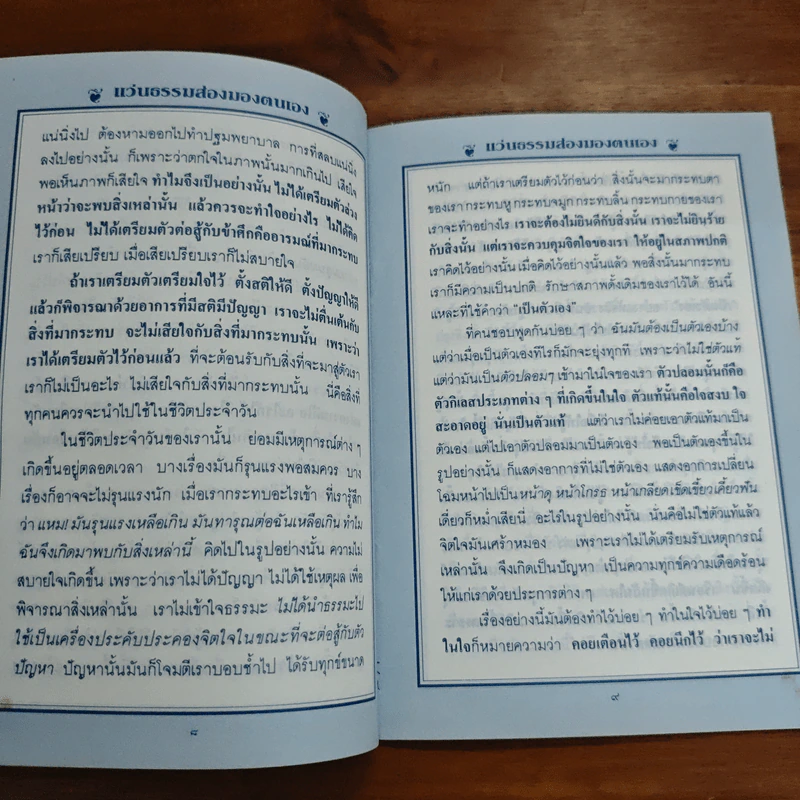 แว่นธรรมส่องมองตนเอง
แน่นิ่งไป ต้องหามออกไปทำปฐมพยาบาล การที่สลบแน่นิ่ง
ลงไปอย่างนั้น ก็เพราะว่าตกใจในภาพนั้นมากเกินไป เสียใจ
พอเห็นภาพก็เสียใจ ทำไมจึงเป็นอย่างนั้น ไม่ได้เตรียมตัวล่วง
หน้าว่าจะพบสิ่งเหล่านั้น แล้วควรจะทำใจอย่างไร ไม่ได้คิด
ไว้ก่อน ไม่ได้เตรียมตัวต่อสู้กับข้าศึกคืออารมณ์ที่มากระทบ
เราก็เสียเปรียบ เมื่อเสียเปรียบเราก็ไม่สบายใจ
ถ้าเราเตรียมตัวเตรียมใจไว้ ตั้งสติให้ดี ตั้งปัญญาให้ดี
แล้วก็พิจารณาด้วยอาการที่มีสติมีปัญญา เราจะไม่ตื่นเต้นกับ
สิ่งที่มากระทบ จะไม่เสียใจกับสิ่งที่มากระทบนั้น เพราะว่า
เราได้เตรียมตัวไว้ก่อนแล้ว ที่จะต้อนรับกับสิ่งที่จะมาสู่ตัวเรา
เราก็ไม่เป็นอะไร ไม่เสียใจกับสิ่งที่มากระทบนั้น นี่คือสิ่งที่
ทุกคนควรจะนำไปใช้ในชีวิตประจำวัน
ในชีวิตประจำวันของเรานั้น ย่อมมีเหตุการณ์ต่าง ๆ
เกิดขึ้นอยู่ตลอดเวลา บางเรื่องมันก็รุนแรงพอสมควร บาง
เรื่องก็อาจจะไม่รุนแรงนัก เมื่อเรากระทบอะไรเข้า ที่เรารู้สึก
ว่า แหม! มันรุนแรงเหลือเกิน มันทารุณต่อฉันเหลือเกิน ทำไม
ฉันจึงเกิดมาพบกับสิ่งเหล่านี้ คิดไปในรูปอย่างนั้น ความไม่
สบายใจเกิดขึ้น เพราะว่าเราไม่ได้ปัญญา ไม่ได้ใช้เหตุผล เพื่อ
พิจารณาสิ่งเหล่านั้น เราไม่เข้าใจธรรมะ ไม่ได้นำธรรมะไป
ใช้เป็นเครื่องประคับประคองจิตใจในขณะที่จะต่อสู้กับตัว
ปัญหา ปัญหานั้นมันก็โจมตีเราบอบช้ำไป ได้รับทุกข์ขนาด
๘
แว่นธรรมส่องมองตนเอง
หนัก แต่ถ้าเราเตรียมตัวไว้ก่อนว่า สิ่งนั้นจะมากระทบตา
ของเรา กระทบหู กระทบจมูก กระทบลิ้น กระทบกายของเรา
เราจะทำอย่างไร เราจะต้องไม่ยินดีกับสิ่งนั้น เราจะไม่ยินร้าย
กับสิ่งนั้น แต่เราจะควบคุมจิตใจของเรา ให้อยู่ในสภาพปกติ
เราคิดไว้อย่างนั้น เมื่อคิดไว้อย่างนั้นแล้ว พอสิ่งนั้นมากระทบ
เราก็มีความเป็นปกติ รักษาสภาพดั้งเดิมของเราไว้ได้ อันนี้
แหละที่ใช้คำว่า "เป็นตัวเอง"
ที่คนชอบพูดกันบ่อย ๆ ว่า ฉันมันต้องเป็นตัวเองบ้าง
แต่ว่าเมื่อเป็นตัวเองทีไรก็มักจะยุ่งทุกที เพราะว่าไม่ใช่ตัวแท้
แต่ว่ามันเป็นตัวปลอมๆ เข้ามาในใจของเรา ตัวปลอมนั้นก็คือ
ตัวกิเลสประเภทต่าง ๆ ที่เกิดขึ้นในใจ ตัวแท้นั้นคือใจสงบ ใจ
สะอาดอยู่ นั่นเป็นตัวแท้ แต่ว่าเราไม่ค่อยเอาตัวแท้มาเป็น
ตัวเอง แต่ไปเอาตัวปลอมมาเป็นตัวเอง พอเป็นตัวเองขึ้นใน
รูปอย่างนั้น ก็แสดงอาการที่ไม่ใช่ตัวเอง แสดงอาการเปลี่ยน
โฉมหน้าไปเป็น หน้าดุ หน้าโกรธ หน้าเกลียด เข็ดเขี้ยวเคี้ยวฟัน
เดี๋ยวก็หม่ำเสียนี่ อะไรในรูปอย่างนั้น นั่นคือไม่ใช่ตัวแท้แล้ว
จิตใจมันเศร้าหมอง เพราะเราไม่ได้เตรียมรับเหตุการณ์
เหล่านั้น จึงเกิดเป็นปัญหา เป็นความทุกข์ความเดือดร้อน
ให้แก่เราด้วยประการต่าง ๆ
เรื่องอย่างนี้มันต้องทำไว้บ่อย ๆ ทำในใจไว้บ่อย ๆ ทำ
ในใจก็หมายความว่า คอยเตือนไว้ คอยนึกไว้ ว่าเราจะไม่
๙